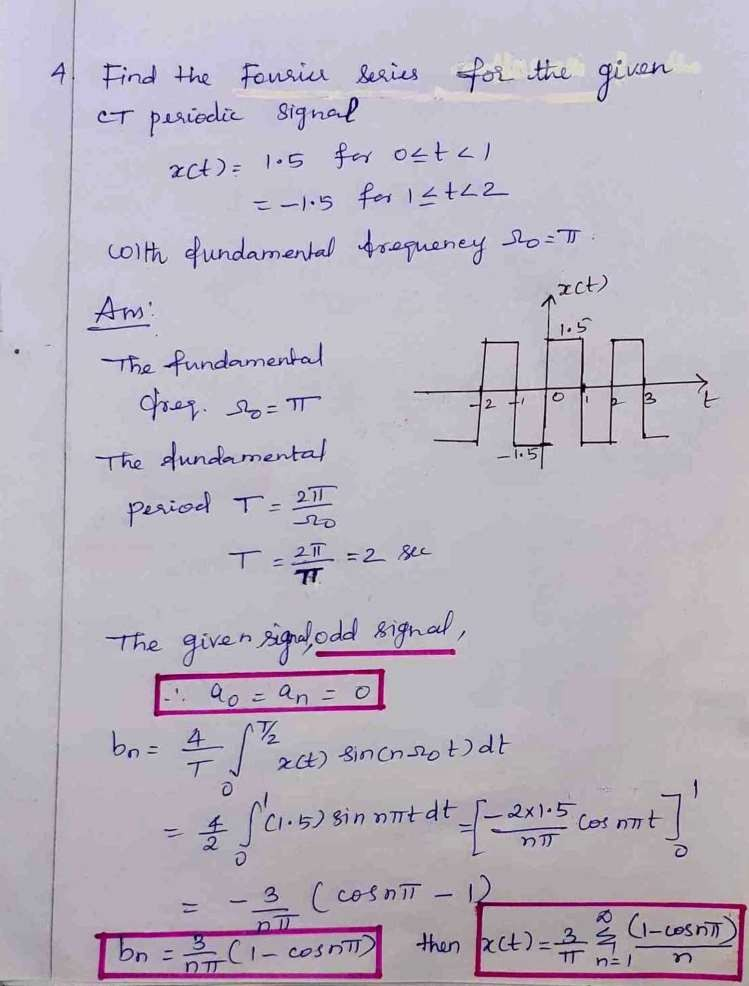 4. Find the Fourier series for the given
CT periodic signal
x(t) = 1.5 for 0≤t<1
= -1.5 for 1≤t<2
With fundamental frequency Ω0 = π.
Ans:
The fundamental
freq. Ω0 = π
The fundamental
period T = 2π/Ω0
T = 2π/π = 2 sec
x(t)
1.5
-2 -1 0 1 2 3 t
-1.5
The given signal, odd signal,
∴ a0 = an = 0
bn = 4/T ∫0^T/2 x(t) sin(nΩ0t) dt
= 4/2 ∫0^1 (1.5) sin nπt dt = [-2×1.5/nπ cos nπt]0^1
= -3/nπ (cos nπ - 1)
bn = 3/nπ (1 - cos nπ) then x(t) = 3/π ∑n=1^∞ (1-cos nπ)/n